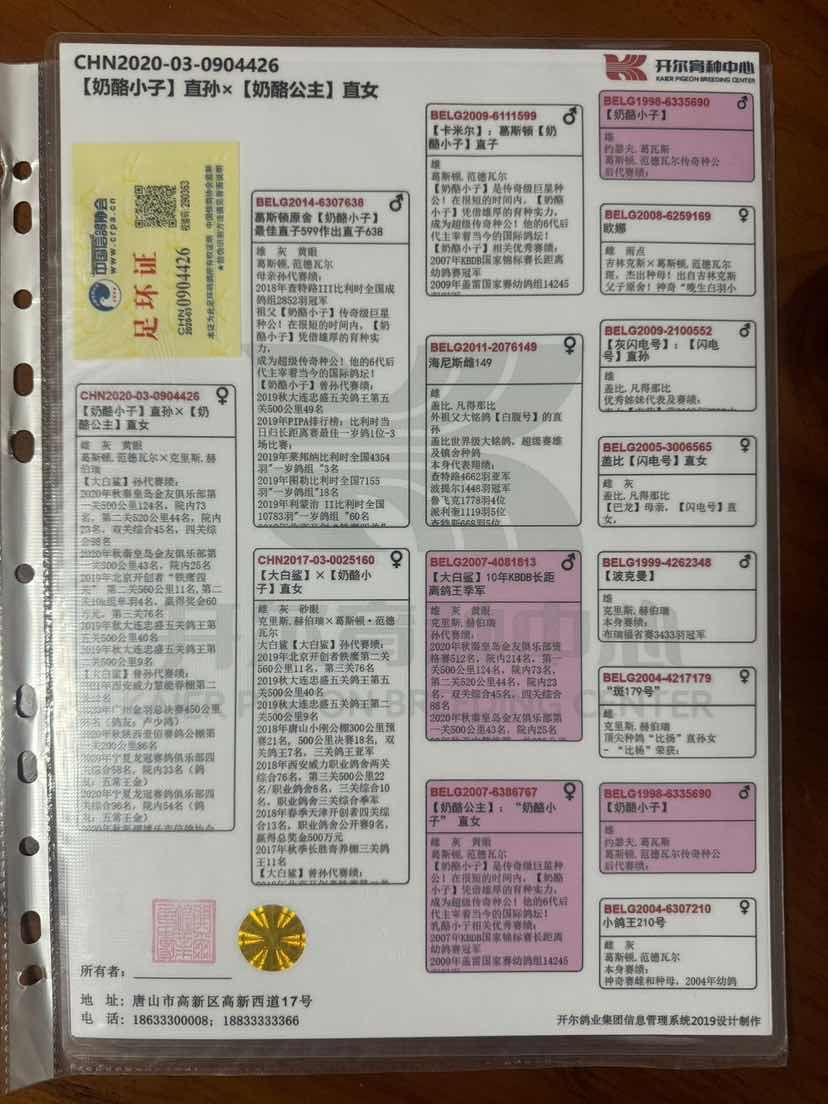 CHN2020-03-0904426
【奶酪小子】直孙×【奶酪公主】直女
开尔育种中心
KAIER PIGEON BREEDING CENTER
中国信鸽协会
www.crpa.cn
足环证
CHN
2020-03
0904426
CHN2020-03-0904426 ♀
【奶酪小子】直孙×【奶
酪公主】直女
雌 灰 黄眼
葛斯顿.范德瓦尔×克里斯.赫
伯瑞
【大白鲨】孙代赛绩：
2020年秋秦皇岛金友俱乐部第
一关500公里124名，院内73
名，第二关520公里44名，院内
23名，双关综合45名，四关综
合88名
2020年秋秦皇岛金友俱乐部第
一关500公里43名，院内25名
2019年北京开创者“铁鹰四
关” 第二关560公里11名，第二
关10k组单羽4名，赢得奖金60
万元，第三关76名
2019年秋大连忠盛五关鸽王第
五关500公里40名
2019年秋大连忠盛五关鸽王第
二关500公里9名
【大白鲨】曾孙代赛绩：
BELG2014-6307638 ♂
葛斯顿原舍【奶酪小子】
最佳直子599作出直子638
雄 灰 黄眼
葛斯顿.范德瓦尔
母亲孙代赛绩：
2018年查特路III比利时全国成
鸽组2852羽冠军
祖父【奶酪小子】传奇级巨星种
公！在很短的时间内，【奶酪
小子】凭借雄厚的育种实
力，
成为超级传奇种公！他的6代后
代主宰着当今的国际鸽坛！
【奶酪小子】曾孙代赛绩：
2019秋大连忠盛五关鸽王第五
关500公里49名
2019年PIPA排行榜：比利时当
日归长距离赛最佳一岁鸽1位-3
场比赛；
2019年莱邦纳比利时全国4354
羽"一岁鸽组 "3名
2019年图勒比利时全国7155
羽"一岁鸽组"18名
2019年利蒙治 II比利时全国
10783羽"一岁鸽组 "60名
CHN2017-03-0025160 ♀
【大白鲨】×【奶酪小
子】直女
雌 灰 砂眼
克里斯.赫伯瑞×葛斯顿·范德
瓦尔
大白鲨【大白鲨】孙代赛绩：
2019年北京开创者铁鹰第二关
560公里11名，第三关76名
2019秋大连忠盛五关鸽王第五
关500公里40名
2019秋大连忠盛五关鸽王第二
关500公里9名
2018年唐山小刚公棚300公里预
赛21名，500公里决赛18名，双
关鸽王7名，三关鸽王亚军
2018年西安威力职业鸽舍两关
综合76名，第三关500公里22
名/职业鸽舍8名，三关综合10
名，职业鸽舍三关综合季军
2018年春季天津开创者四关综
合13名，职业鸽舍公开赛9名，
赢得总奖金500万元
2017年秋季长胜寄养棚三关鸽
王11名
【大白鲨】曾孙代赛绩：
BELG2009-6111599 ♂
【卡米尔】：葛斯顿【奶
酪小子】直子
雄
葛斯顿.范德瓦尔
【奶酪小子】是传奇级巨星种
公！在很短的时间内，【奶酪
小子】凭借雄厚的育种实力，
成为超级传奇种公！他的6代后
代主宰着当今的国际鸽坛！
【奶酪小子】相关优秀赛绩：
2007年KBDB国家锦标赛长距离
幼鸽赛冠军
2009年盖雷国家赛幼鸽组14245
BELG2011-2076149 ♀
海尼斯雌149
雌
盖比.凡得那比
外祖父大铭鸽【白腹号】的直
孙
盖比世界级大铭鸽，超级赛雄
及镇舍种鸽
本身代表翔绩：
查特路4662羽亚军
波提尔1448羽冠军
鲁飞克1778羽4位
派利奎1119羽5位
查特斯668羽5位
BELG2007-4081813 ♂
【大白鲨】10年KBDB长距
离鸽王季军
雄 灰 黄眼
克里斯.赫伯瑞
孙代赛绩：
2020年秋秦皇岛金友俱乐部资
格赛512名，院内214名，第一
关500公里124名，院内73名，
第二关520公里44名，院内23
名，双关综合45名，四关综合
88名
2020年秋秦皇岛金友俱乐部第
一关500公里43名，院内25名
BELG2007-6386767 ♀
【奶酪公主】：“奶酪小
子” 直女
雌 灰 黄眼
葛斯顿.范德瓦尔
【奶酪小子】是传奇级巨星种
公！在很短的时间内，【奶酪
小子】凭借雄厚的育种实力，
成为超级传奇种公！他的6代后
代主宰着当今的国际鸽坛！
乳酪小子相关优秀赛绩：
2007年KBDB国家锦标赛长距离
幼鸽赛冠军
2009年盖雷国家赛幼鸽组14245
BELG1998-6335690 ♂
【奶酪小子】
雄
约瑟夫.葛瓦斯
葛斯顿.范德瓦尔传奇种公
后代赛绩：
BELG2008-6259169 ♀
欧娜
雌 雨点
吉林克斯×葛斯顿.范德瓦尔
斑，杰出种母！出自吉林克斯
父子原舍！神奇“晚生白羽小
BELG2009-2100552 ♂
【灰闪电号】：【闪电
号】直孙
雄
盖比.凡得那比
优秀姊妹代表及赛绩：
BELG2005-3006565 ♀
盖比【闪电号】直女
雌 灰
盖比.凡得那比
【巴龙】母亲，【闪电号】直
女，
BELG1999-4262348 ♂
【波克曼】
雄
克里斯.赫伯瑞
本身赛绩：
布瑞福省赛3433羽冠军
BELG2004-4217179 ♀
“斑179号”
雌
克里斯.赫伯瑞
顶尖种鸽“比扬”直孙女
- “比扬”荣获：
BELG1998-6335690 ♂
【奶酪小子】
雄
约瑟夫.葛瓦斯
葛斯顿.范德瓦尔传奇种公
后代赛绩：
BELG2004-6307210 ♀
小鸽王210号
雌 灰
葛斯顿.范德瓦尔
本身赛绩：
神奇赛雌和种母，2004年幼鸽
所有者：
地 址：唐山市高新区高新西道17号
电 话：18633300008；18833333366
开尔鸽业集团信息管理系统2019设计制作